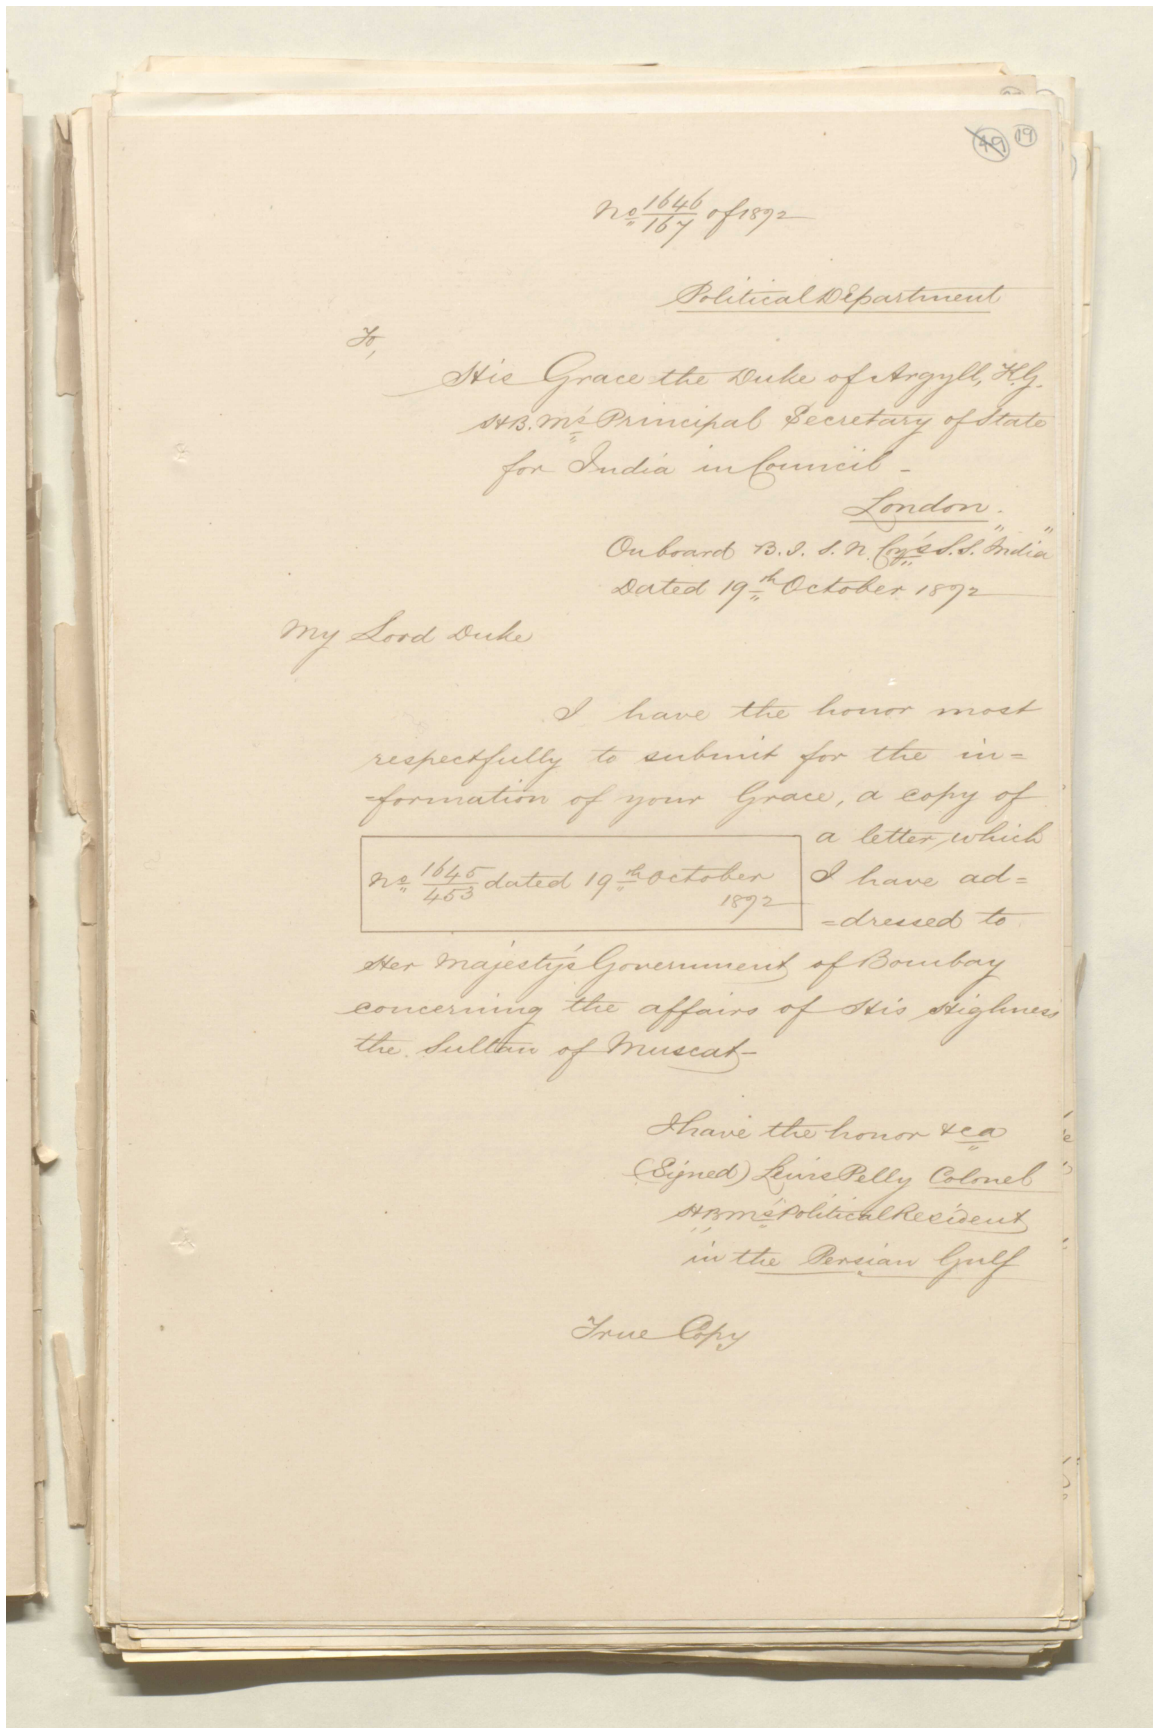 49 19
No 1646/167 of 1872
Political Department
To,
His Grace the Duke of Argyll, K.G.
H.B.M's Principal Secretary of State
for India in Council -
London.
On board B. I. S. N. Coy's S.S. "India"
Dated 19th October 1872
My Lord Duke
I have the honor most
respectfully to submit for the in=
=formation of your Grace, a copy of
a letter, which
No 1645/453 dated 19th October
1872
I have ad=
=dressed to
Her Majesty's Government of Bombay
concerning the affairs of His Highness
the Sultan of Muscat -
I have the honor &ca
(Signed) Lewis Pelly Colonel
H.B.M's Political Resident
in the Persian Gulf
True Copy